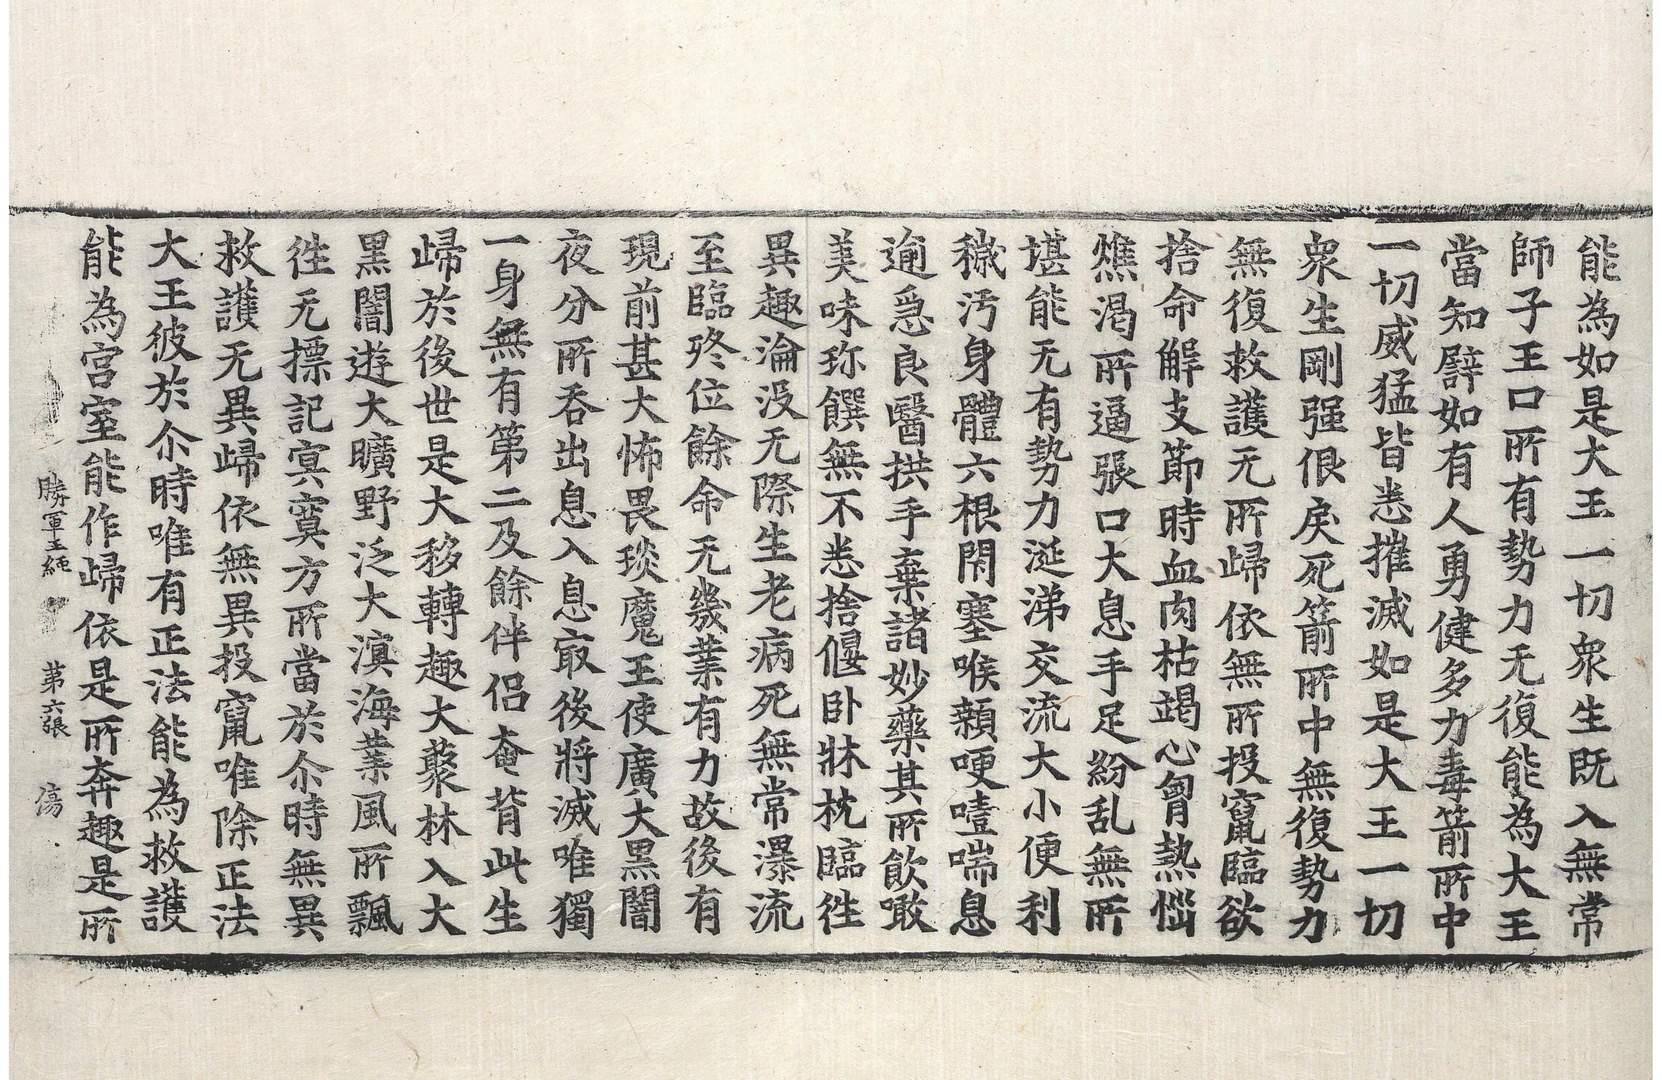 能為如是大王一切衆生既入無常
師子王口所有勢力无復能為大王
當知譬如有人勇健多力毒箭所中
一切威猛皆悉摧滅如是大王一切
衆生剛强佷戾死箭所中無復勢力
無復救護无所歸依無所投竄臨欲
捨命解支節時血肉枯竭心胷熱惱
燋渴所逼張口大息手足紛乱無所
堪能无有勢力涎涕交流大小便利
穢汚身體六根閇塞喉顙哽噎喘息
逾急良醫拱手棄諸妙藥其所飲噉
美味珎饌無不悉捨偃卧牀枕臨往
異趣淪没无際生老病死無常瀑流
至臨終位餘命无幾業有力故後有
現前甚大怖畏琰魔王使廣大黑闇
夜分所吞出息入息㝡後將滅唯獨
一身無有第二及餘伴侣奄背此生
歸於後世是大移轉趣大藂林入大
黑闇遊大曠野泛大溟海業風所飄
往无摽記㝠㝠方所當於尒時無異
救護无異歸依無異投竄唯除正法
大王彼於尒時唯有正法能為救護
能為宫室能作歸依是所奔趣是所
勝軍王純 第六張 傷